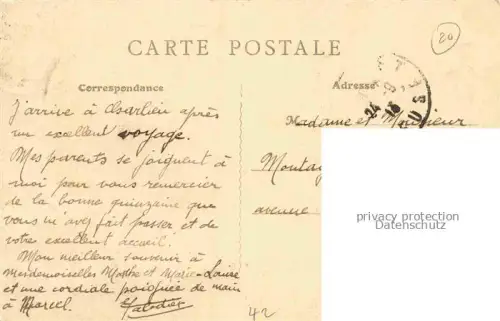 20
CARTE POSTALE
Correspondance
Adresse
J'arrive à Charlieu après
un excellent voyage.
Mes parents se joignent à
moi pour vous remercier
de la bonne quinzaine que
vous m'avez fait passer, et de
votre excellent accueil.
Mon meilleur souvenir à
Mesdemoiselles Marthe et Marie-Louise
et une cordiale poignée de main
à Marcel.
Madame et Monsieur
avenue
privacy protection
Datenschutz
42